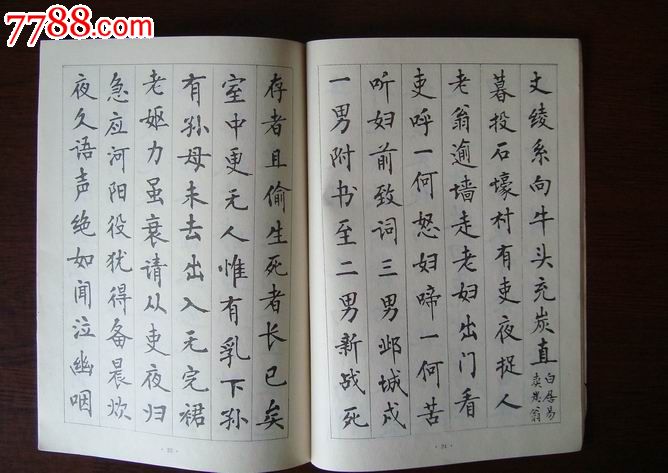 7788.com
丈绫系向牛头充炭直
白居易
卖炭翁
暮投石壕村有吏夜捉人
老翁逾墙走老妇出门看
吏呼一何怒妇啼一何苦
听妇前致词三男邺城戍
一男附书至二男新战死
存者且偷生死者长已矣
室中更无人惟有乳下孙
有孙母未去出入无完裙
老妪力虽衰请从吏夜归
急应河阳役犹得备晨炊
夜久语声绝如闻泣幽咽